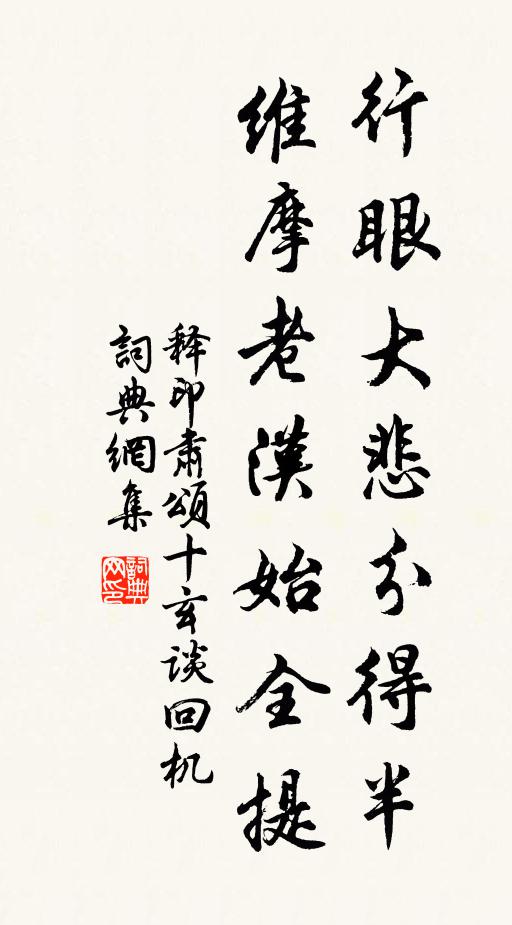 行眼大悲分得半
維摩老漢始全提
释印肃頌十玄谈回机
詞典網集
詞典网印